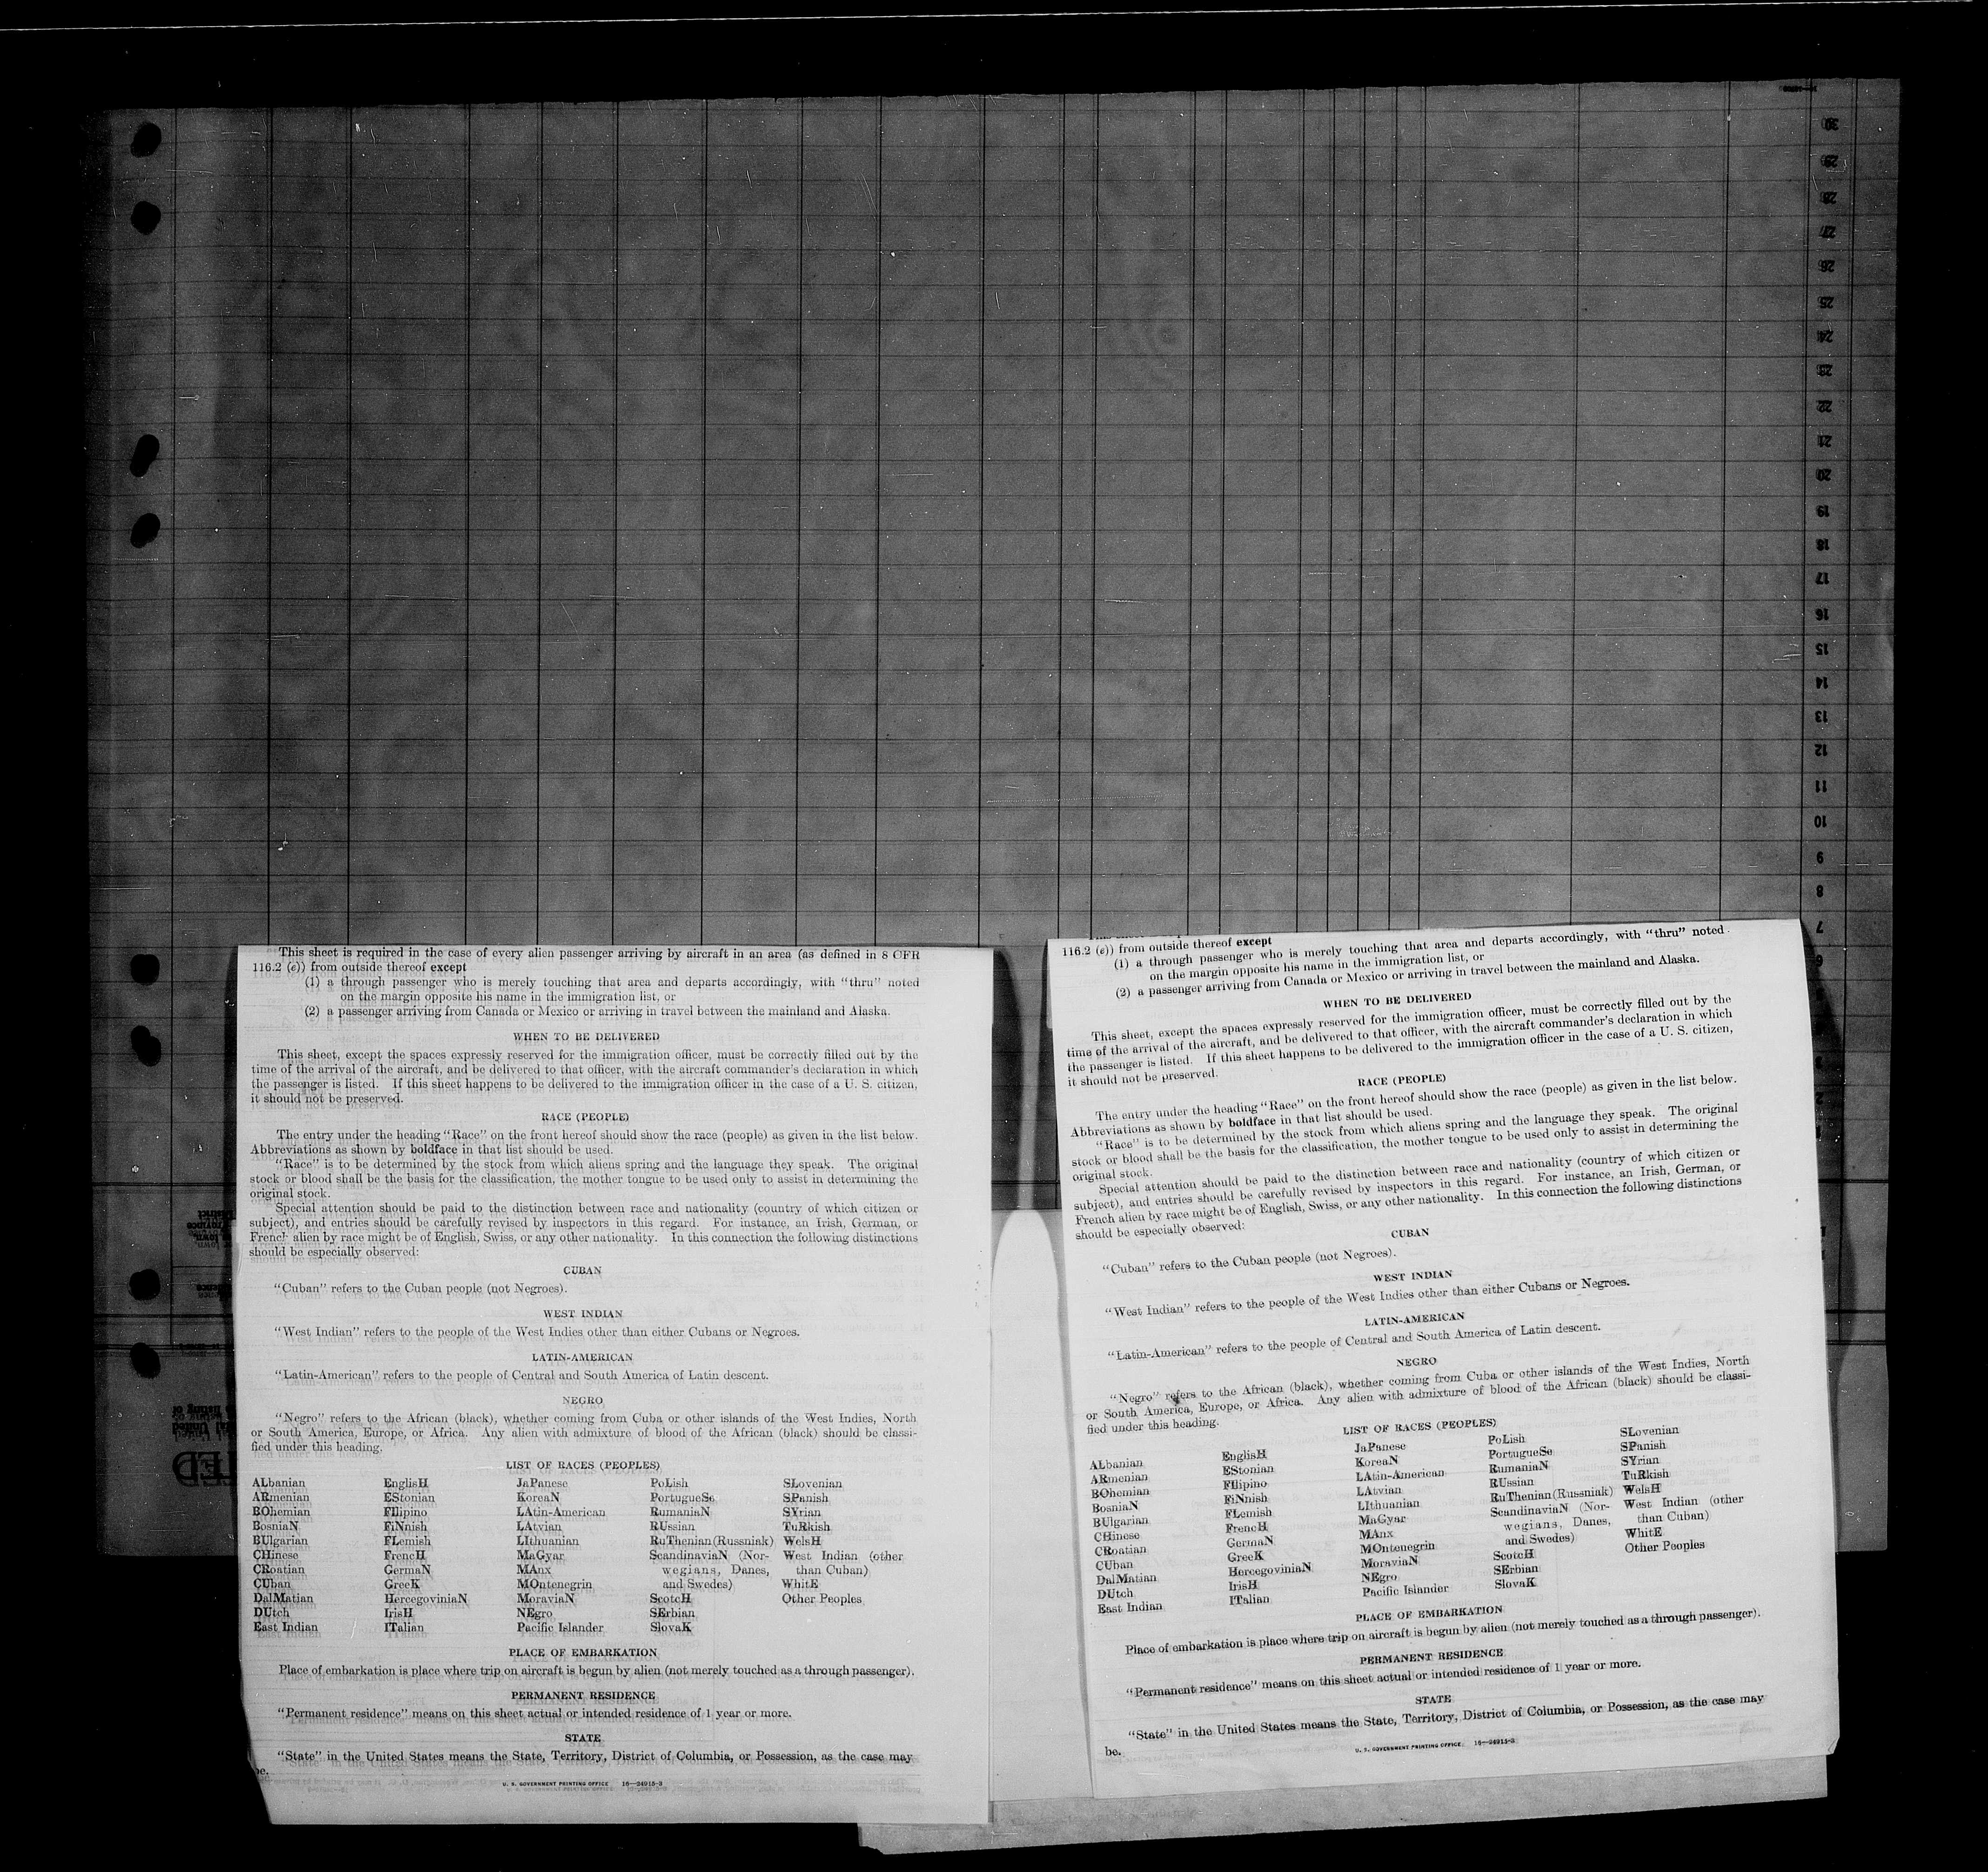 This sheet is required in the case of every alien passenger arriving by aircraft in an area (as defined in 8 CFR
116.2 (e)) from outside thereof except
(1) a through passenger who is merely touching that area and departs accordingly, with “thru” noted
on the margin opposite his name in the immigration list, or
(2) a passenger arriving from Canada or Mexico or arriving in travel between the mainland and Alaska.
WHEN TO BE DELIVERED
This sheet, except the spaces expressly reserved for the immigration officer, must be correctly filled out by the
time of the arrival of the aircraft, and be delivered to that officer, with the aircraft commander’s declaration in which
the passenger is listed. If this sheet happens to be delivered to the immigration officer in the case of a U. S. citizen,
it should not be preserved.
RACE (PEOPLE)
The entry under the heading “Race” on the front hereof should show the race (people) as given in the list below.
Abbreviations as shown by boldface in that list should be used.
“Race” is to be determined by the stock from which aliens spring and the language they speak. The original
stock or blood shall be the basis for the classification, the mother tongue to be used only to assist in determining the
original stock.
Special attention should be paid to the distinction between race and nationality (country of which citizen or
subject), and entries should be carefully revised by inspectors in this regard. For instance, an Irish, German, or
French alien by race might be of English, Swiss, or any other nationality. In this connection the following distinctions
should be especially observed:
CUBAN
“Cuban” refers to the Cuban people (not Negroes).
WEST INDIAN
“West Indian” refers to the people of the West Indies other than either Cubans or Negroes.
LATIN-AMERICAN
“Latin-American” refers to the people of Central and South America of Latin descent.
NEGRO
“Negro” refers to the African (black), whether coming from Cuba or other islands of the West Indies, North
or South America, Europe, or Africa. Any alien with admixture of blood of the African (black) should be classi-
fied under this heading.
LIST OF RACES (PEOPLES)
ALbanian EnglisH JaPanese PoLish SLovenian
ARmenian EStonian KoreaN PortugueSe SPanish
BOhemian FIlipino LAtin-American RumaniaN SYrian
BosniaN FiNnish LAtvian RUssian TuRkish
BUlgarian FLemish LIthuanian RuThenian (Russniak) WelsH
CHinese FrencH MaGyar ScandinaviaN (Nor- West Indian (other
CRoatian GermaN MAnx wegians, Danes, than Cuban)
CUban GreeK MOntenegrin and Swedes) WhitE
DalMatian HercegoviniaN MoraviaN ScotcH Other Peoples
DUtch IrisH NEgro SErbian
East Indian ITalian Pacific Islander SlovaK
PLACE OF EMBARKATION
Place of embarkation is place where trip on aircraft is begun by alien (not merely touched as a through passenger).
PERMANENT RESIDENCE
“Permanent residence” means on this sheet actual or intended residence of 1 year or more.
STATE
“State” in the United States means the State, Territory, District of Columbia, or Possession, as the case may
be.
U. S. GOVERNMENT PRINTING OFFICE 16—24915-3
116.2 (e)) from outside thereof except
(1) a through passenger who is merely touching that area and departs accordingly, with “thru” noted
on the margin opposite his name in the immigration list, or
(2) a passenger arriving from Canada or Mexico or arriving in travel between the mainland and Alaska.
WHEN TO BE DELIVERED
This sheet, except the spaces expressly reserved for the immigration officer, must be correctly filled out by the
time of the arrival of the aircraft, and be delivered to that officer, with the aircraft commander’s declaration in which
the passenger is listed. If this sheet happens to be delivered to the immigration officer in the case of a U. S. citizen,
it should not be preserved.
RACE (PEOPLE)
The entry under the heading “Race” on the front hereof should show the race (people) as given in the list below.
Abbreviations as shown by boldface in that list should be used.
“Race” is to be determined by the stock from which aliens spring and the language they speak. The original
stock or blood shall be the basis for the classification, the mother tongue to be used only to assist in determining the
original stock.
Special attention should be paid to the distinction between race and nationality (country of which citizen or
subject), and entries should be carefully revised by inspectors in this regard. For instance, an Irish, German, or
French alien by race might be of English, Swiss, or any other nationality. In this connection the following distinctions
should be especially observed:
CUBAN
“Cuban” refers to the Cuban people (not Negroes).
WEST INDIAN
“West Indian” refers to the people of the West Indies other than either Cubans or Negroes.
LATIN-AMERICAN
“Latin-American” refers to the people of Central and South America of Latin descent.
NEGRO
“Negro” refers to the African (black), whether coming from Cuba or other islands of the West Indies, North
or South America, Europe, or Africa. Any alien with admixture of blood of the African (black) should be classi-
fied under this heading.
LIST OF RACES (PEOPLES)
ALbanian EnglisH JaPanese PoLish SLovenian
ARmenian EStonian KoreaN PortugueSe SPanish
BOhemian FIlipino LAtin-American RumaniaN SYrian
BosniaN FiNnish LAtvian RUssian TuRkish
BUlgarian FLemish LIthuanian RuThenian (Russniak) WelsH
CHinese FrencH MaGyar ScandinaviaN (Nor- West Indian (other
CRoatian GermaN MAnx wegians, Danes, than Cuban)
CUban GreeK MOntenegrin and Swedes) WhitE
DalMatian HercegoviniaN MoraviaN ScotcH Other Peoples
DUtch IrisH NEgro SErbian
East Indian ITalian Pacific Islander SlovaK
PLACE OF EMBARKATION
Place of embarkation is place where trip on aircraft is begun by alien (not merely touched as a through passenger).
PERMANENT RESIDENCE
“Permanent residence” means on this sheet actual or intended residence of 1 year or more.
STATE
“State” in the United States means the State, Territory, District of Columbia, or Possession, as the case may
be.
U. S. GOVERNMENT PRINTING OFFICE 16—24915-3
30
29
28
27
26
25
24
23
22
21
20
19
18
17
16
15
14
13
12
11
10
9
8
7
6